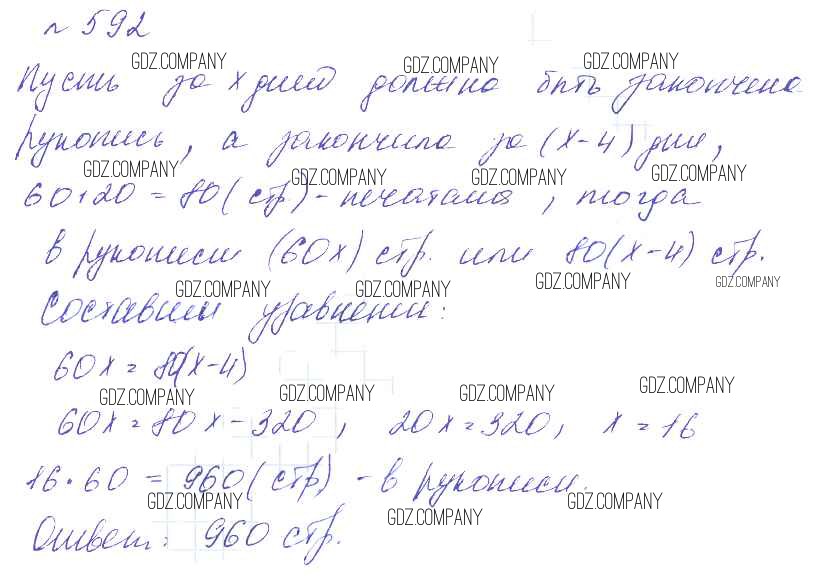 № 592
GDZ.COMPANY GDZ.COMPANY GDZ.COMPANY
Пусть за x дней должна быть закончена
рукопись, а закончила за (x-4) дня,
GDZ.COMPANY GDZ.COMPANY GDZ.COMPANY GDZ.COMPANY
60+20 = 80 (стр) - печатала, тогда
в рукописи (60x) стр. или 80(x-4) стр.
GDZ.COMPANY GDZ.COMPANY GDZ.COMPANY GDZ.COMPANY
Составим уравнение:
60x = 80(x-4)
GDZ.COMPANY GDZ.COMPANY GDZ.COMPANY GDZ.COMPANY
60x = 80x - 320, 20x = 320, x = 16
16·60 = 960 (стр) - в рукописи.
GDZ.COMPANY GDZ.COMPANY GDZ.COMPANY
Ответ: 960 стр.